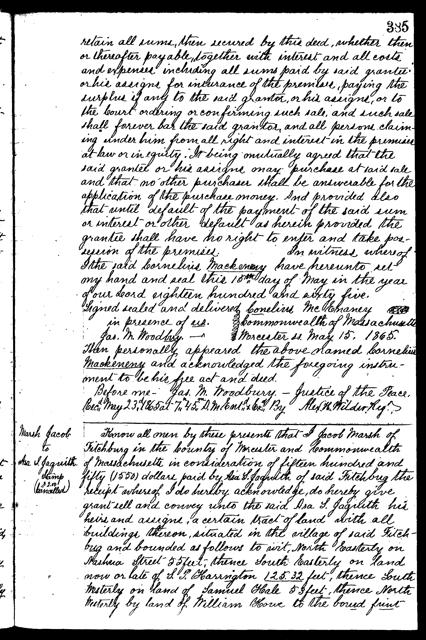 385
retain all sums, then secured by this deed, whether then
or thereafter payable, together with interest and all costs
and expenses including all sums paid by said grantee
or his assigns for insurance of the premises, paying the
surplus if any to the said grantor, or his assigns, or to
the Court ordering or confirming such sale, and such sale
shall forever bar the said grantor, and all persons claim-
ing under him from all right and interest in the premises
at law or in equity. It being mutually agreed that the
said grantee or his assigns may purchase at said sale
and that no other purchaser shall be answerable for the
application of the purchase money. And provided also
that until default of the payment of the said sum
or interest or other default as herein provided the
grantee shall have no right to enter and take pos-
session of the premises. In witness whereof
I the said Cornelius Mackeneny have hereunto set
my hand and seal this 15th day of May in the year
of our Lord eighteen hundred and sixty five.
Signed sealed and delivered Conelius McKenaney
in presence of us. Commonwealth of Massachusetts
Jas. M. Woodbury — Worcester ss May 15. 1865.
Then personally appeared the above named Cornelius
Mackeneny and acknowledged the foregoing instru-
ment to be his free act and deed.
Before me - Jas. M. Woodbury — Justice of the Peace.
Rec'd May 23, 1865 at 7h 45m A.M. Ent. & Ex. By Alex. H. Wilder Reg.
Marsh Jacob
to
Asa S. Jaquith
Stamp
Cancelled
Know all men by these presents that I Jacob Marsh of
Fitchburg in the County of Worcester and Commonwealth
of Massachusetts in consideration of fifteen hundred and
fifty (1550) dollars paid by Asa S. Jaquith of said Fitchburg the
receipt whereof I do hereby acknowledge, do hereby give
grant sell and convey unto the said Asa S. Jaquith his
heirs and assigns, a certain tract of land with all
buildings thereon, situated in the village of said Fitch-
burg and bounded as follows to wit, North Easterly on
Nashua Street 55 feet, thence South Easterly on land
now or late of Harrington 125.32 feet, thence South
Westerly on land of Samuel Hale 53 feet, thence North
Westerly by land of William Howe to the bound first